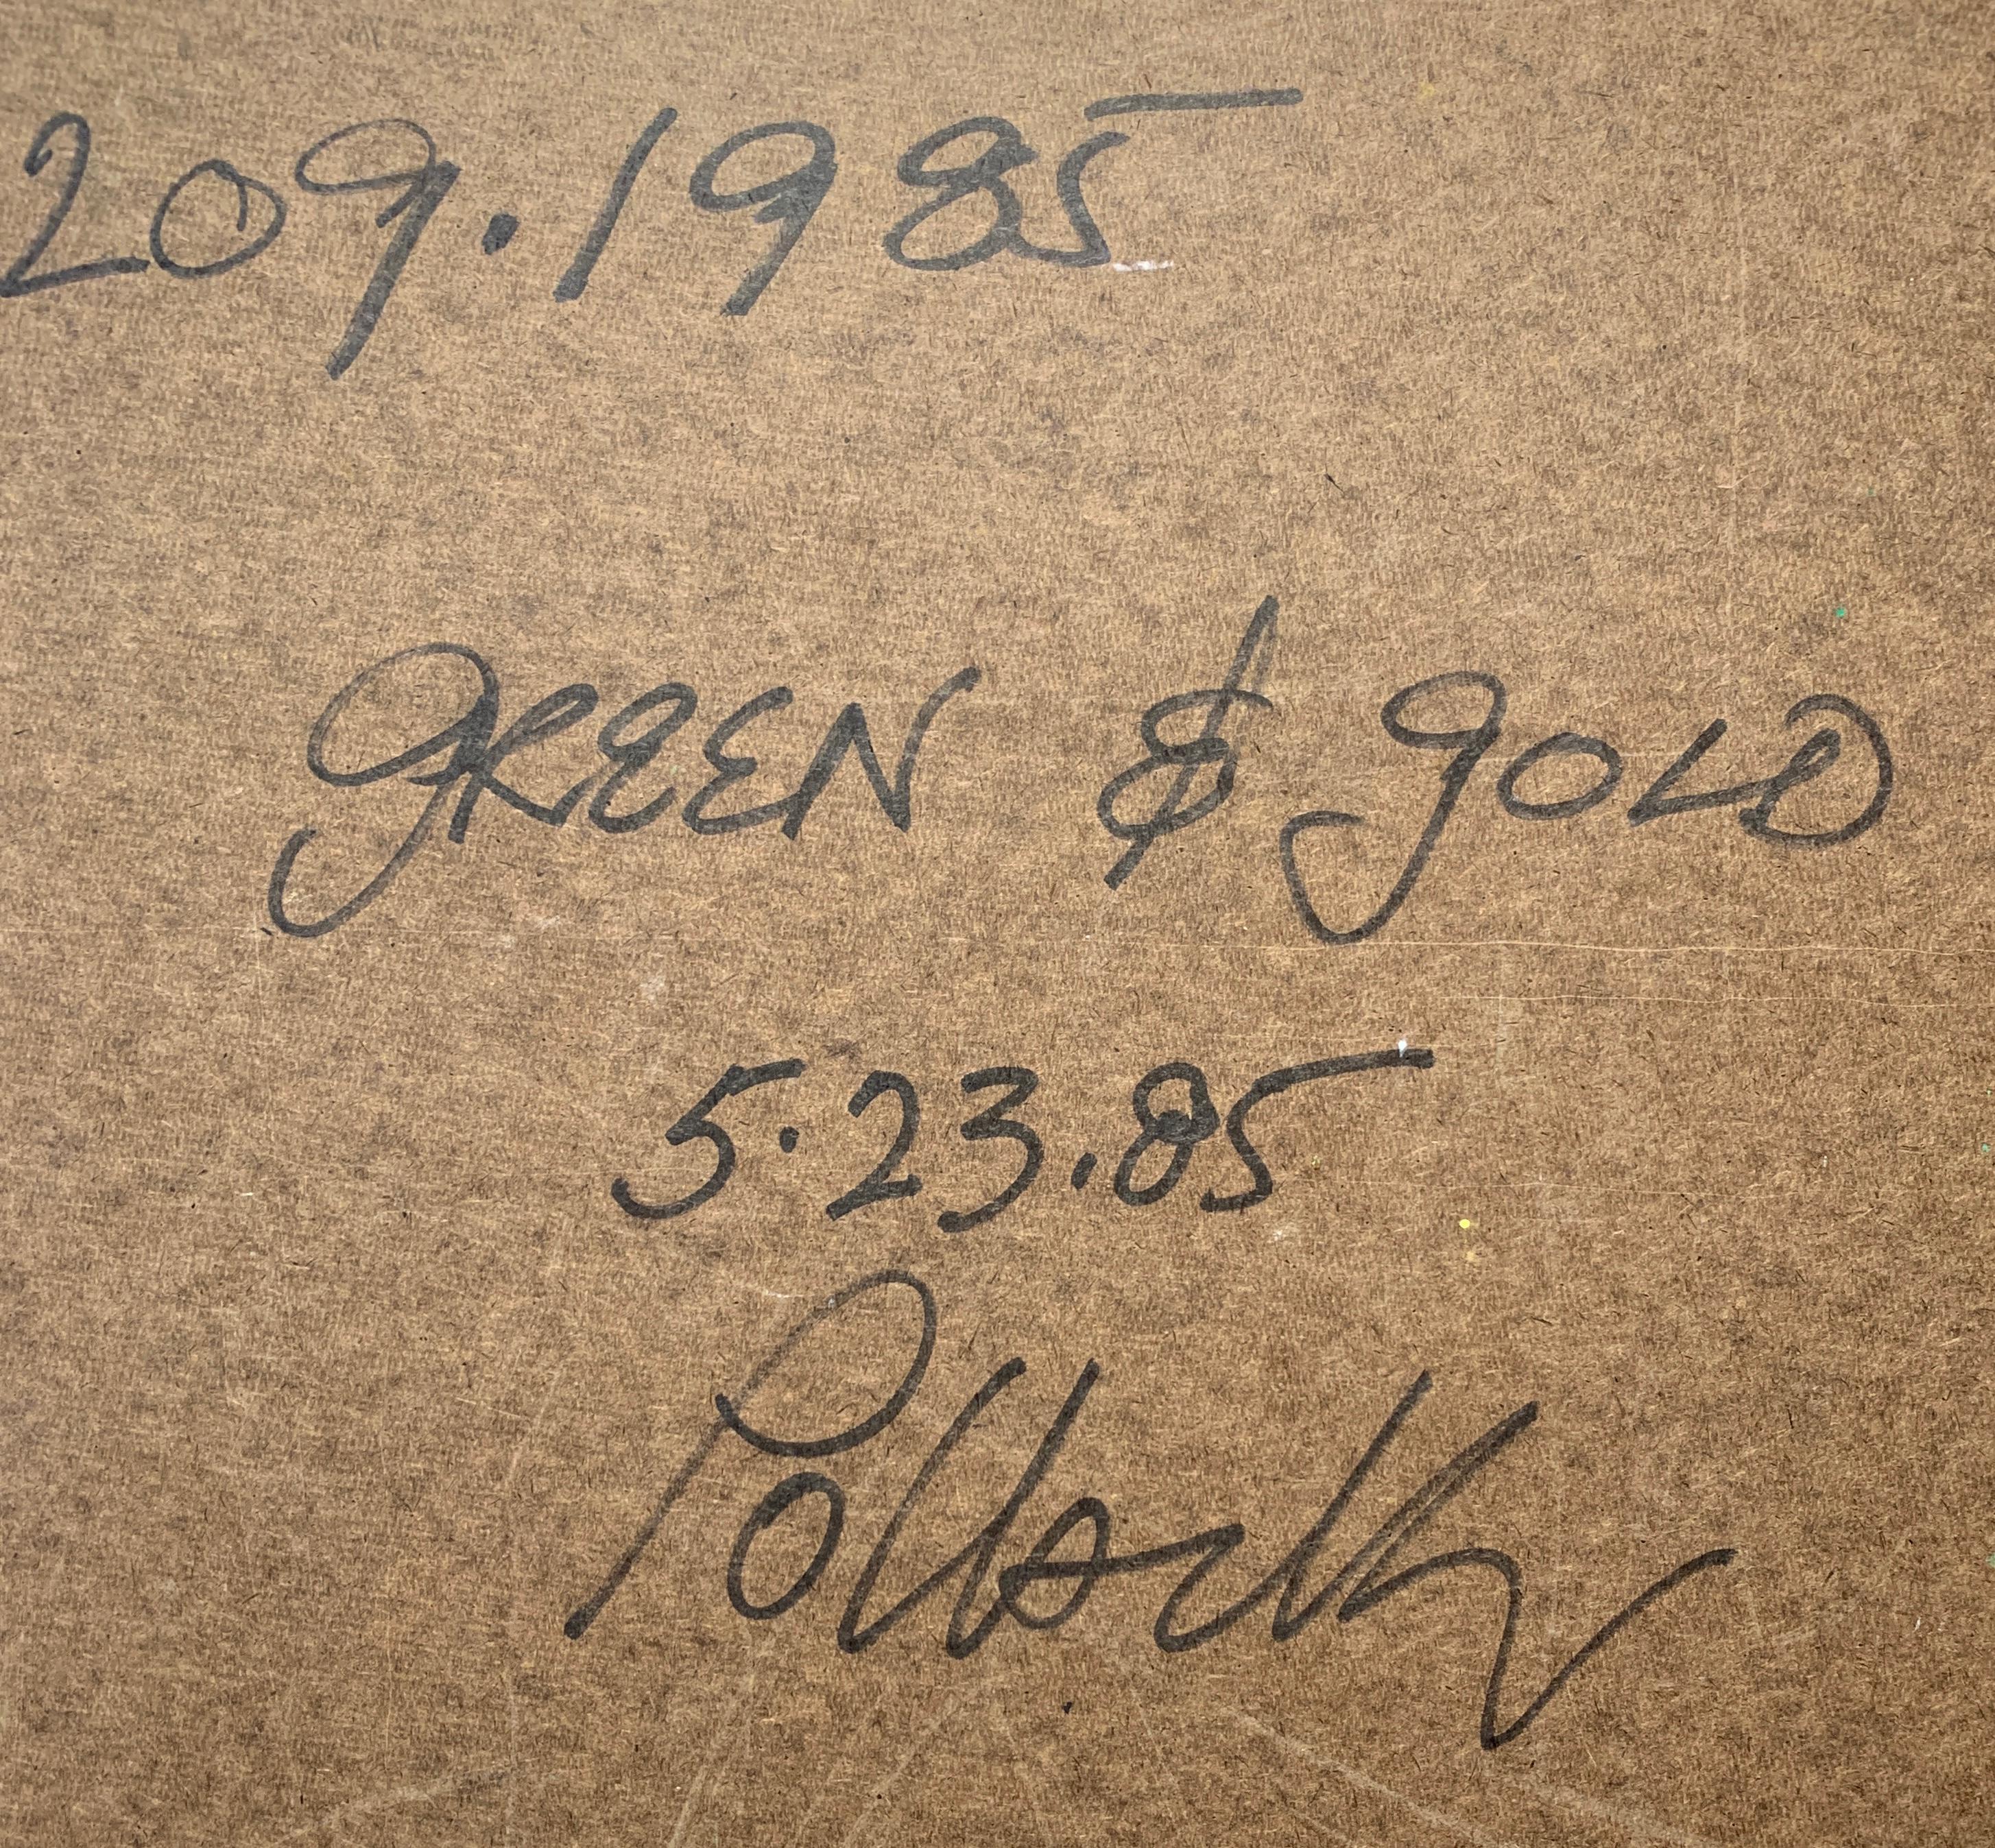 209.1985
GREEN & GOLD
5.23.85
Pollock